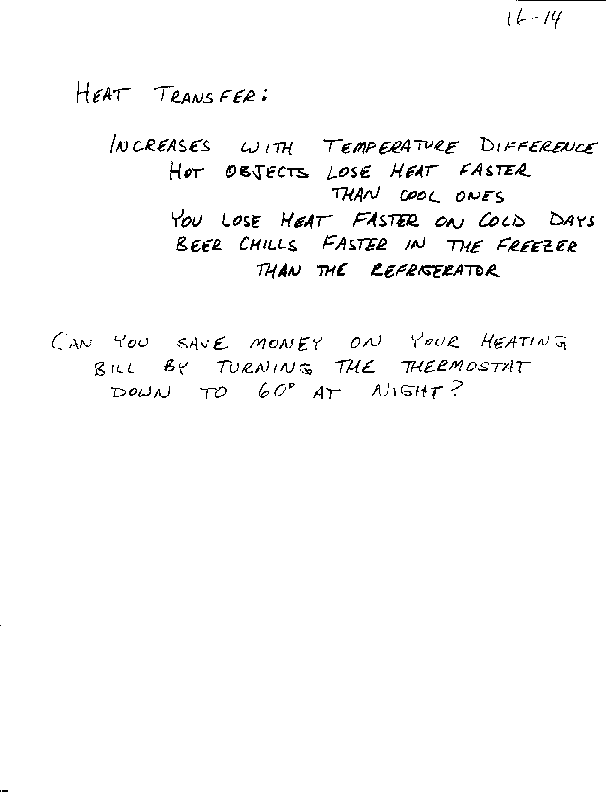 16-14
HEAT TRANSFER:
INCREASES WITH TEMPERATURE DIFFERENCE
HOT OBJECTS LOSE HEAT FASTER
THAN COOL ONES
YOU LOSE HEAT FASTER ON COLD DAYS
BEER CHILLS FASTER IN THE FREEZER
THAN THE REFRIGERATOR
CAN YOU SAVE MONEY ON YOUR HEATING
BILL BY TURNING THE THERMOSTAT
DOWN TO 60° AT NIGHT?